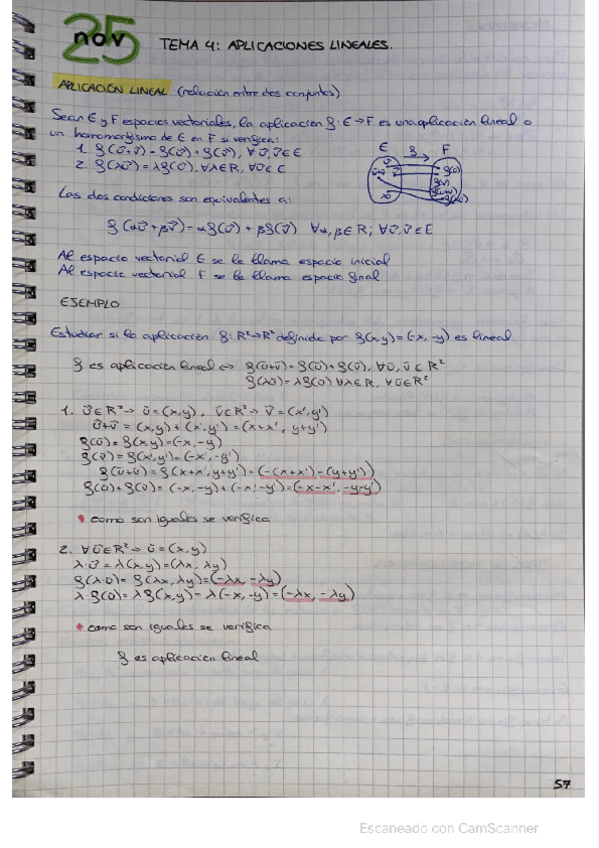 25 nov
TEMA 4: APLICACIONES LINEALES.
APLICACIÓN LINEAL (relación entre dos conjuntos)
Sean E y F espacios vectoriales, la aplicación f: E→F es una aplicación lineal o
un homomorfismo de E en F si verifica:
1. f(ū+v̄) = f(ū) + f(v̄), ∀ū, v̄ ∈ E
2. f(λū) = λf(ū), ∀λ∈R, ∀ū∈E
E f F
Las dos condiciones son equivalentes a:
f(αū+βv̄) = αf(ū) + βf(v̄) ∀α, β∈R; ∀ū, v̄∈E
Al espacio vectorial E se le llama espacio inicial
Al espacio vectorial F se le llama espacio final
EJEMPLO
Estudiar si la aplicación f: R²→R² definida por f(x,y)=(-x,-y) es lineal.
f es aplicación lineal ⇔ f(ū+v̄) = f(ū)+f(v̄), ∀ū, v̄ ∈ R²
f(λū)=λf(ū) ∀λ∈R, ∀ū∈R²
1. ū∈R² → ū=(x,y), v̄∈R² → v̄=(x',y')
ū+v̄ = (x,y) + (x',y') = (x+x', y+y')
f(ū)= f(x,y)=(-x,-y)
f(v̄)= f(x',y')=(-x',-y')
f(ū+v̄)= f(x+x', y+y')=(-(x+x')-(y+y'))
f(ū)+f(v̄)= (-x,-y)+(-x',-y')=(-x-x', -y-y')
• como son iguales se verifica
2. ∀ū∈R² → ū=(x,y)
λ·ū = λ(x,y)=(λx, λy)
f(λ·ū)= f(λx, λy)=(-λx, -λy)
λ·f(ū)= λf(x,y)= λ(-x,-y)=(-λx, -λy)
• como son iguales se verifica
f es aplicación lineal
57
Escaneado con CamScanner